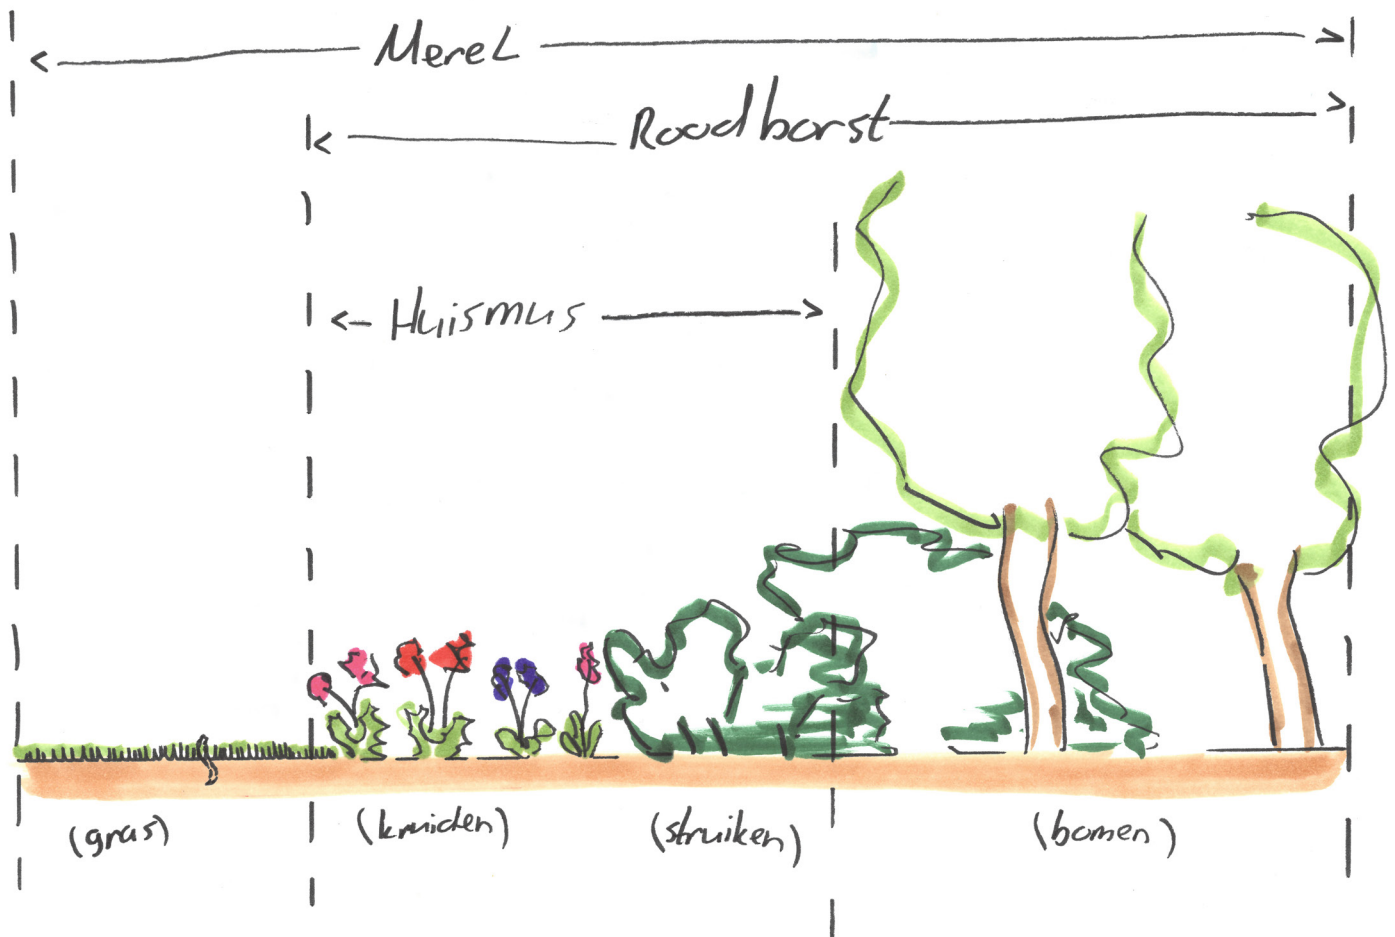 Merel
Roodborst
Huismus
(gras) (kruiden) (struiken) (bomen)